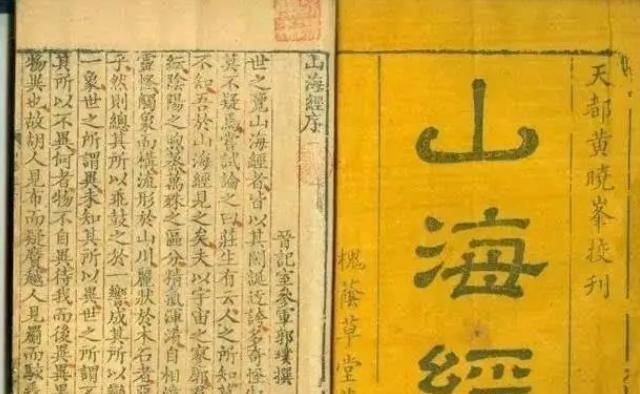 天都黃曉峯挍刊
山海經
槐蔭草堂
山海經序
晉記室參軍郭璞撰
世之覽山海經者皆以其閎誕迂誇多奇怪
莫不疑焉嘗試論之曰莊生有云人之所知
不知吾於山海經見之矣夫以宇宙之寥
紜陰陽之煦蒸萬殊之區分精氣渾淆自相
靈怪觸象而構流形於山川麗狀於木石者
乎然則總其所以乖鼓之於一響成其所以
一象世之所謂異未知其所以異世之所謂不
其所以不異何者物不自異待我而後異異
物異也故胡人見布而疑黂越人見罽而駭